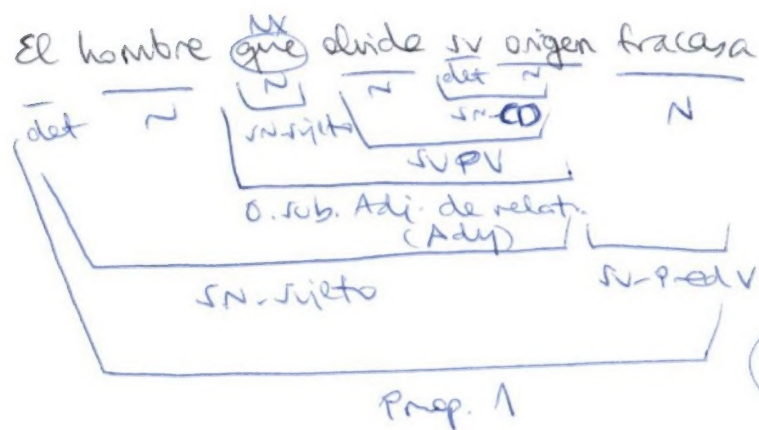 NX
El hombre que olvida su origen fracasa
det N
N N N
det N SN-sujeto SN-CD N
SV PV
O. sub. Adj. de relat.
(Ady)
SN-sujeto SV-Pred V
Prop. 1